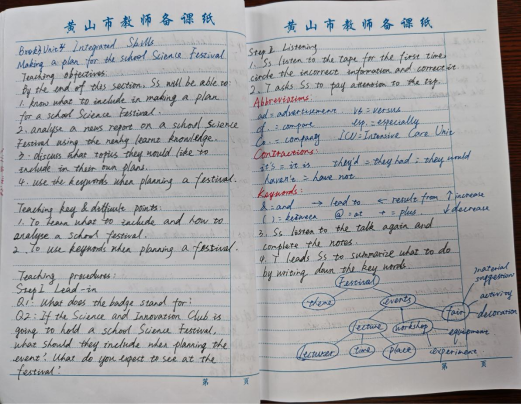 黄山市教师备课纸
Book3 Unit4 Integrated Skills
Making a plan for the school Science Festival
Teaching objectives:
By the end of this section, Ss will be able to:
1. know what to include in making a plan
for a school Science Festival.
2. analyse a news report on a school Science
Festival using the newly learnt knowledge.
3. discuss what topics they would like to
include in their own plans.
4. use the keywords when planning a festival.
Teaching key & difficult points:
1. To learn what to include and how to
analyse a school festival.
2. To use keywords when planning a festival.
Teaching procedures:
Step I Lead-in
Q1: What does the badge stand for?
Q2: If the Science and Innovation Club is
going to hold a school Science Festival,
what should they include when planning the
event? What do you expect to see at the
festival?
第 页
黄山市教师备课纸
Step II Listening
1. Ss listen to the tape for the first time,
circle the incorrect information and correct it.
2. T asks Ss to pay attention to the tip.
Abbreviations:
ad = advertisement vs = versus
cf. = compare esp. = especially
Co. = company ICU = Intensive Care Unit
Contractions:
it's = it is they'd = they had = they would
haven't = have not
Keywords:
& = and → lead to ← result from ↑ increase
( ) = between @ = at + = plus ↓ decrease
3. Ss listen to the talk again and
complete the notes.
4. T leads Ss to summarize what to do
by writing down the key words.
Festival
theme
events
lecture
workshop
fair
lecturer
time
place
equipment
experiment
material
suggestion
activity
decoration
第 页